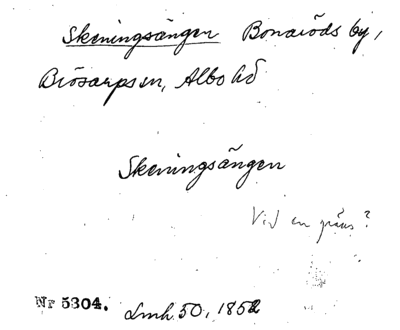 Skeningsängen Bonaröds by,
Brösarps sn, Albo hd
Skeningsängen
Vid en gräns?
Nr 5304. Lmh 50, 1852